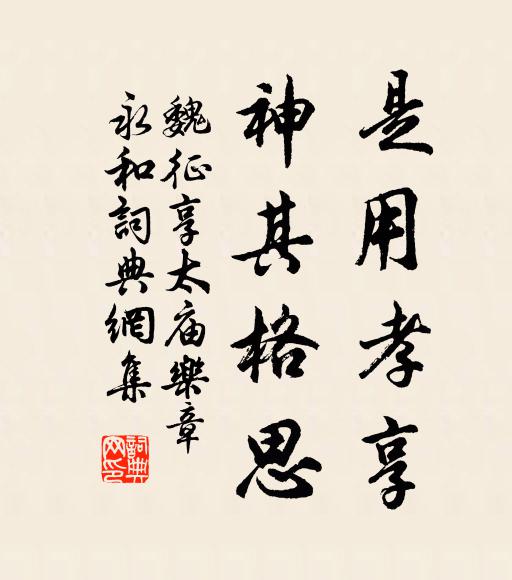 是用孝享
神其格思
魏征享太庙樂章
永和詞典網集
詞典
网印